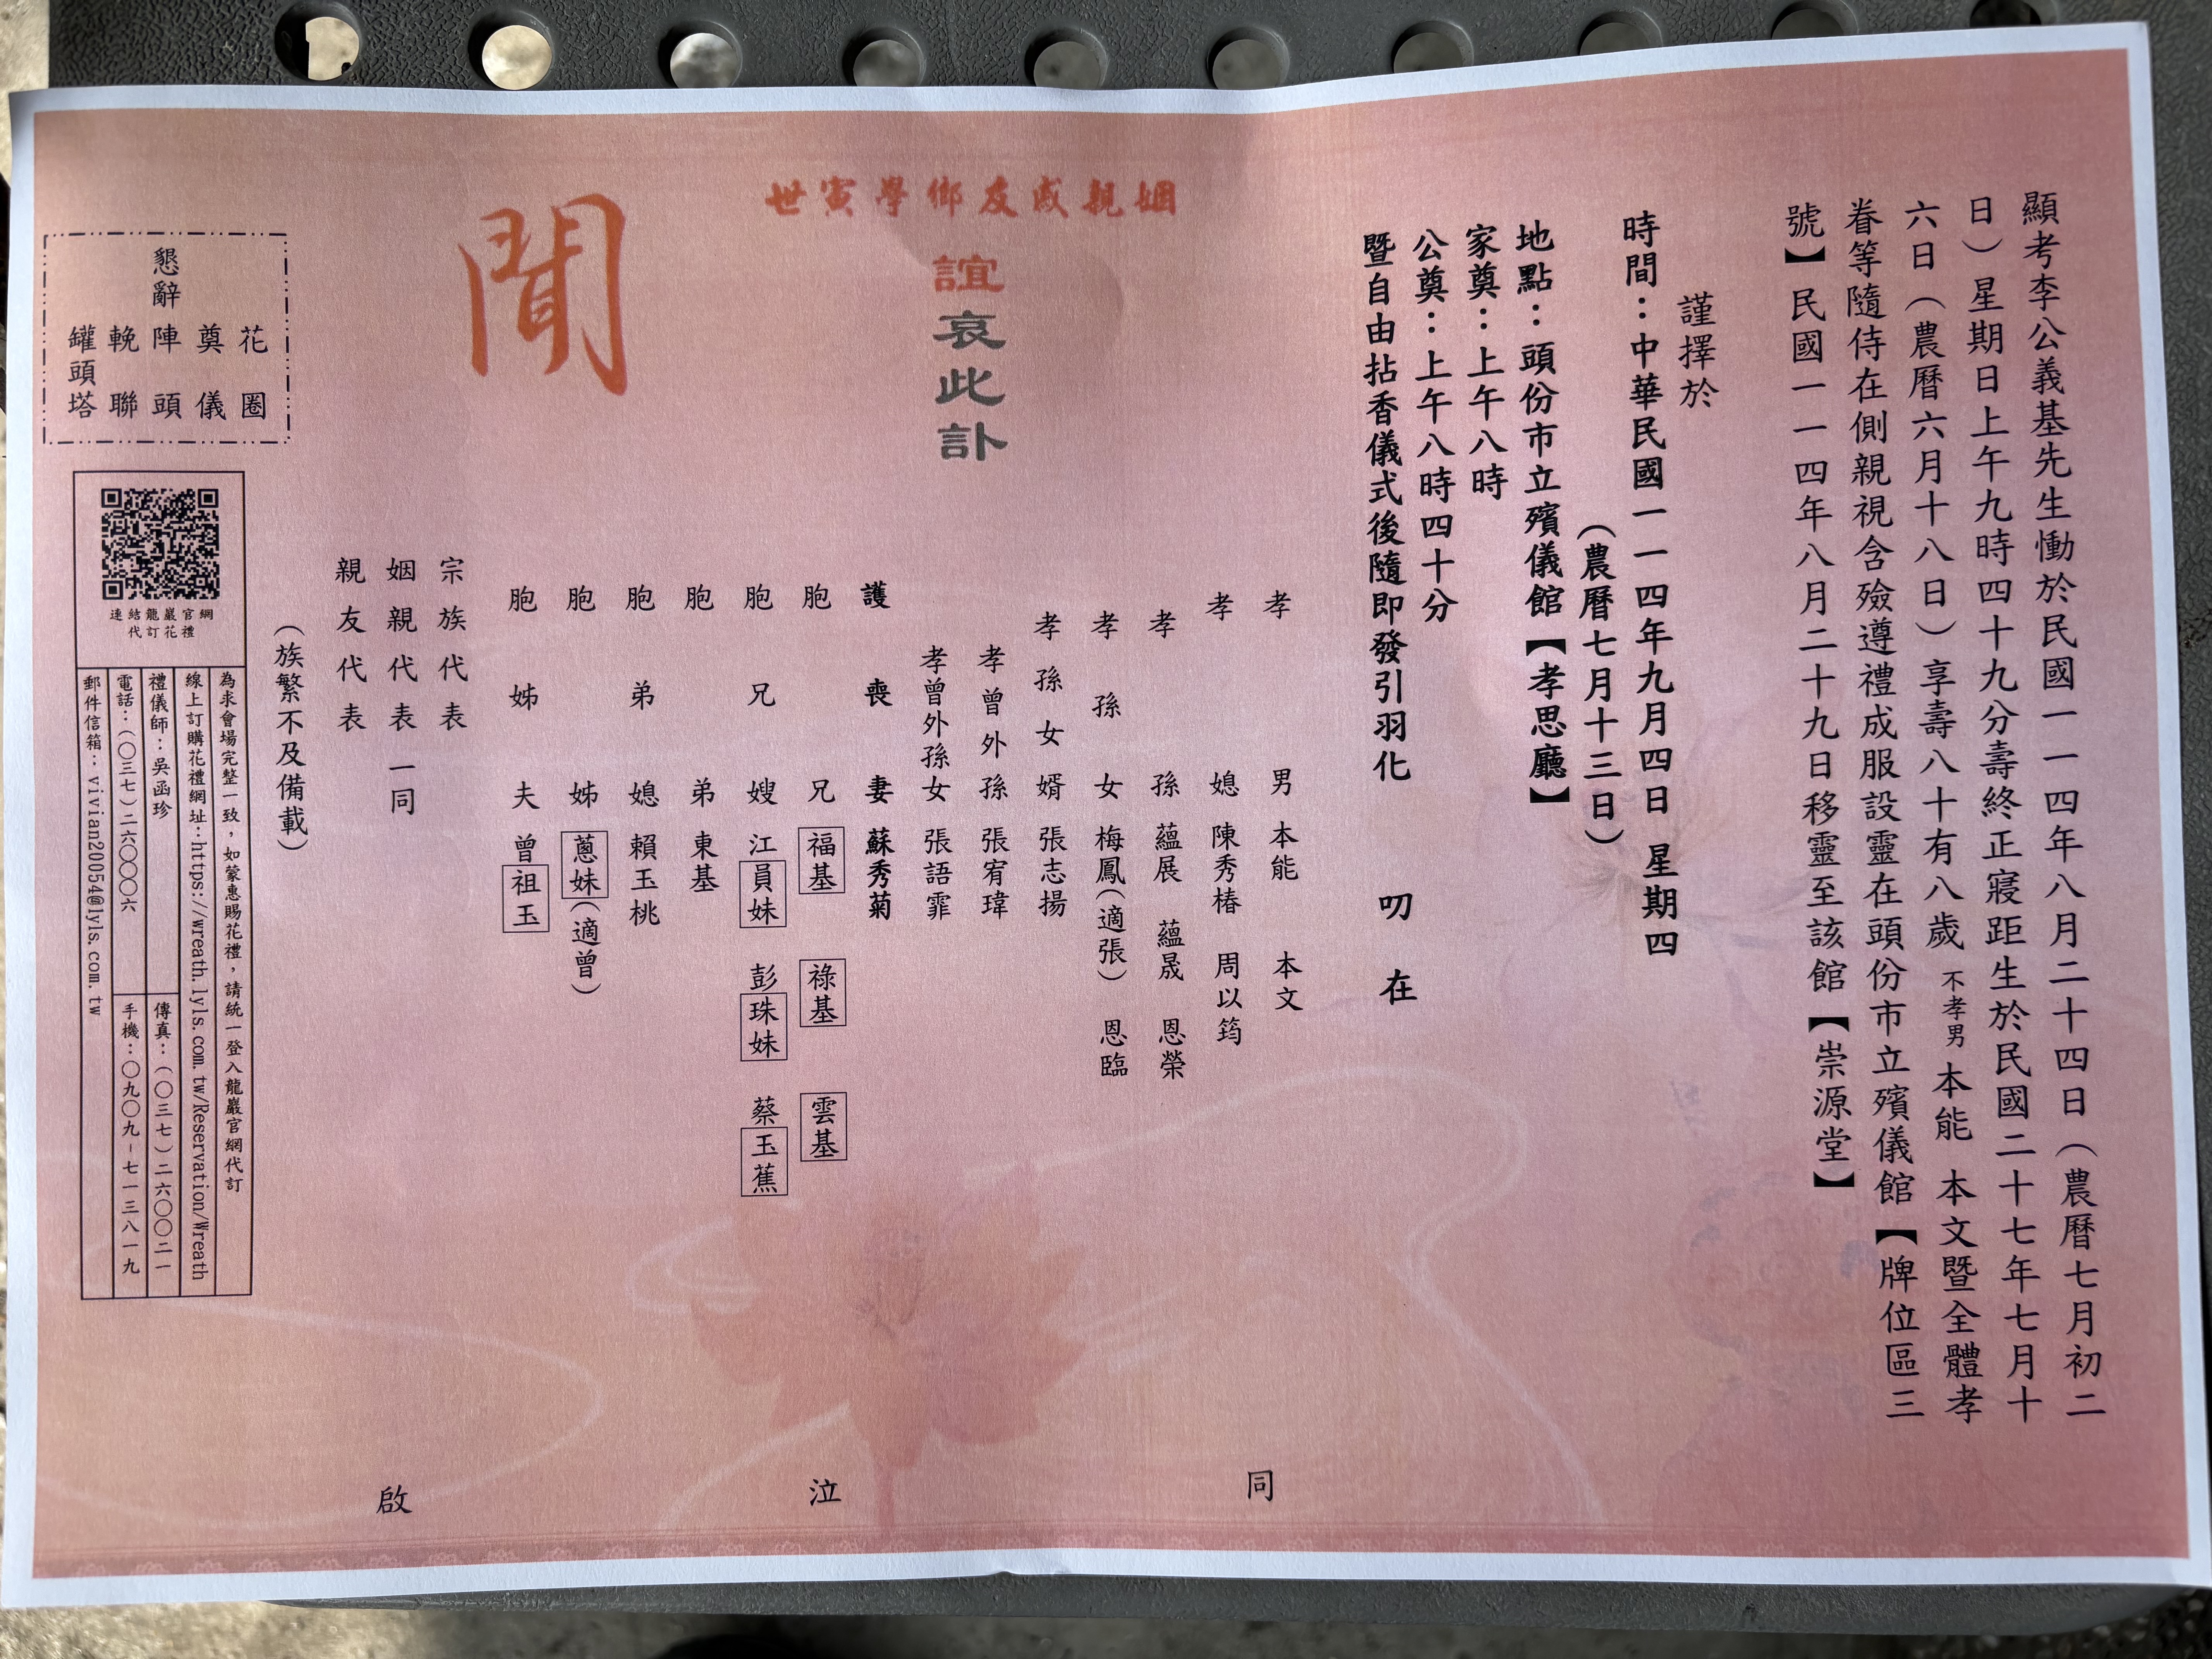 顯考李公義基先生慟於民國一一四年八月二十四日（農曆七月初二
日）星期日上午九時四十九分壽終正寢距生於民國二十七年七月十
六日（農曆六月十八日）享壽八十有八歲 不孝男 本能 本文暨全體孝
眷等隨侍在側親視含殮遵禮成服設靈在頭份市立殯儀館【牌位區三
號】民國一一四年八月二十九日移靈至該館【崇源堂】
謹擇於
時間：中華民國一一四年九月四日 星期四
（農曆七月十三日）
地點：頭份市立殯儀館【孝思廳】
家奠：上午八時
公奠：上午八時四十分
暨自由拈香儀式後隨即發引羽化 叨 在
姻親戚友鄉學寅世
誼哀此訃
聞
孝男 本能 本文
孝媳 陳秀椿 周以筠
孝孫 蘊展 蘊晟 恩榮
孝孫女 梅鳳（適張） 恩臨
孝孫女婿 張志揚
孝曾外孫 張宥瑋
孝曾外孫女 張語霏
護喪妻 蘇秀菊
胞兄 福基 祿基 雲基
胞兄嫂 江員妹 彭珠妹 蔡玉蕉
胞弟 東基
胞弟媳 賴玉桃
胞姊 蔥妹（適曾）
胞姊夫 曾祖玉
宗族代表
姻親代表一同
親友代表
（族繁不及備載）
同 泣 啟
懇辭
花圈
奠儀
陣頭
輓聯
罐頭塔
連結龍巖官網
代訂花禮
為求會場完整一致，如蒙惠賜花禮，請統一登入龍巖官網代訂
線上訂購花禮網址：https://wreath.lyls.com.tw/Reservation/Wreath
禮儀師：吳函珍
傳真：（〇三七）二六〇〇二一
電話：（〇三七）二六〇〇〇六
手機：〇九〇九－七一三八一九
郵件信箱：vivian20054@lyls.com.tw